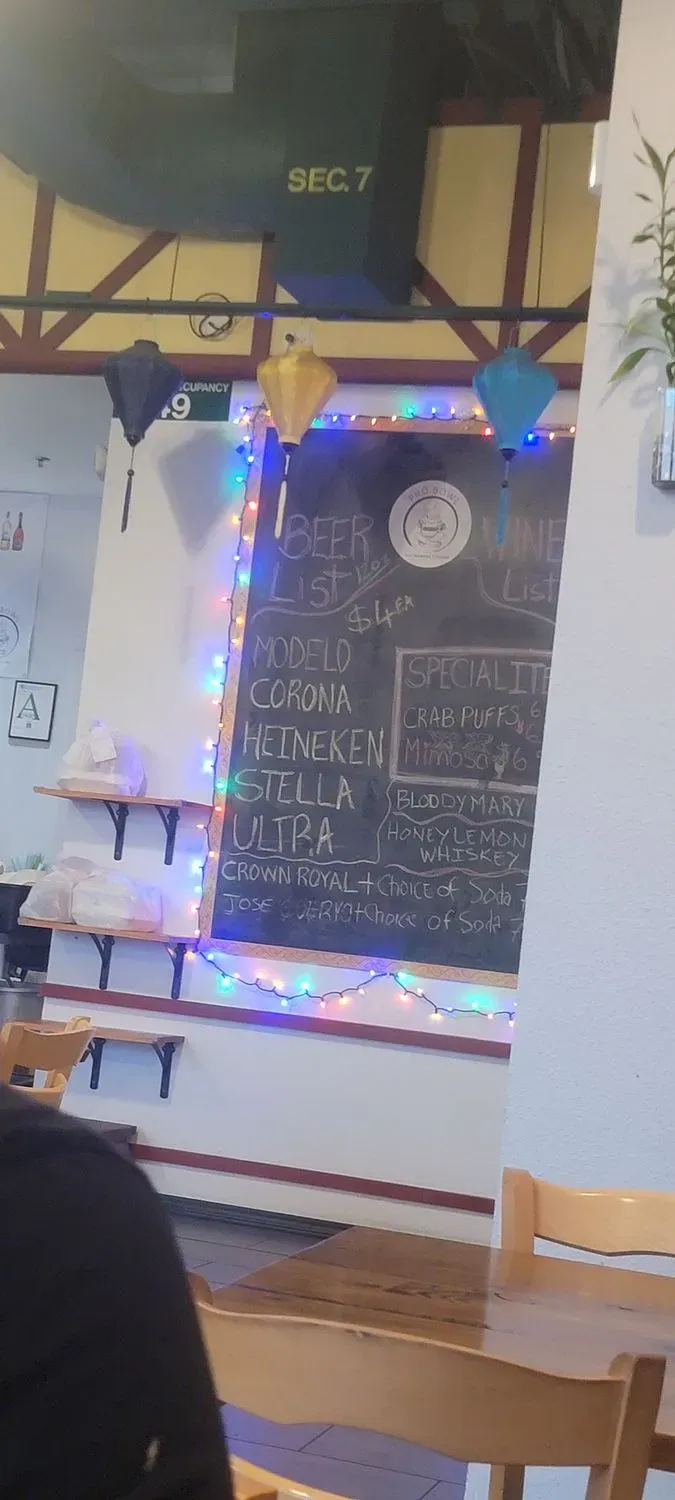 SEC. 7
CUPANCY
49
PHO BOWL
BEER
List 12oz
$4 EA
WINE
List
MODELO
CORONA
HEINEKEN
STELLA
ULTRA
SPECIALITE
CRAB PUFFS 6
Mimosa 6
BLODDY MARY
HONEY LEMON
WHISKEY
CROWN ROYAL + CHoice of Soda 7
JOSE CUERVO + Choice of Soda 7
A